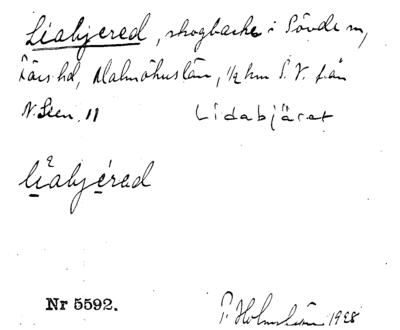 Liabjered, skogbacke i Sövde sn,
Färs hd, Malmöhus län, 1/2 km S.V. från
N. Lien. 11 Lidabjäret
liabjered
Nr 5592.
P. Holmström 1928